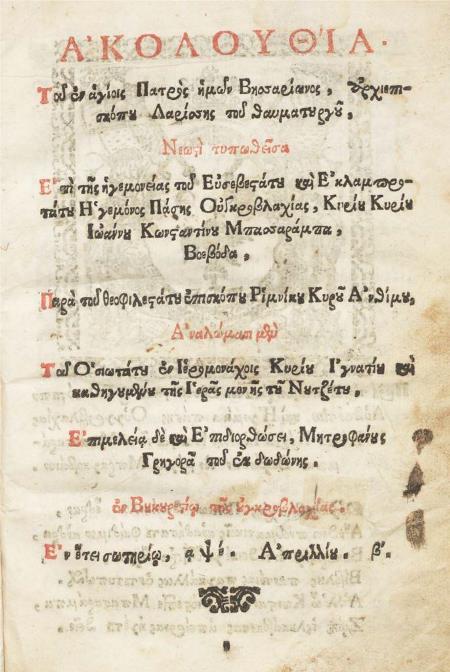 ἈΚΟΛΟΥΘΊΑ.
Τοῦ ἐν ἁγίοις Πατρὸς ἡμῶν Βησσαρίωνος, Ἀρχιεπι-
σκόπου Λαρίσσης τοῦ θαυματουργοῦ,
Νεωστὶ τυπωθεῖσα
Ἐπὶ τῆς ἡγεμονείας τοῦ Εὐσεβεστάτου καὶ Ἐκλαμπρο-
τάτου Ἡγεμόνος Πάσης Οὐγκροβλαχίας, Κυρίου Κυρίου
Ἰωάννου Κωνσταντίνου Μπασσαράμπα,
Βοεβόδα,
Παρὰ τοῦ θεοφιλεστάτου ἐπισκόπου Ῥιμνίκου Κυροῦ Ἀνθίμου,
Ἀναλώμασι μὲν
Τοῦ Ὁσιωτάτου ἐν Ἱερομονάχοις Κυρίου Ἰγνατίου καὶ
καθηγουμένου τῆς Ἱερᾶς μονῆς τοῦ Νουτζέτου,
Ἐπιμελείᾳ δὲ καὶ Ἐπιδιορθώσει, Μητροφάνους
Γρηγορᾶ τοῦ ἐκ δωδώνης.
ἐν Βουκουρεστίῳ τῆς οὐγκροβλαχίας.
Ἐν ἔτει σωτηρίῳ, αψέ. Ἀπριλλίου. β΄.